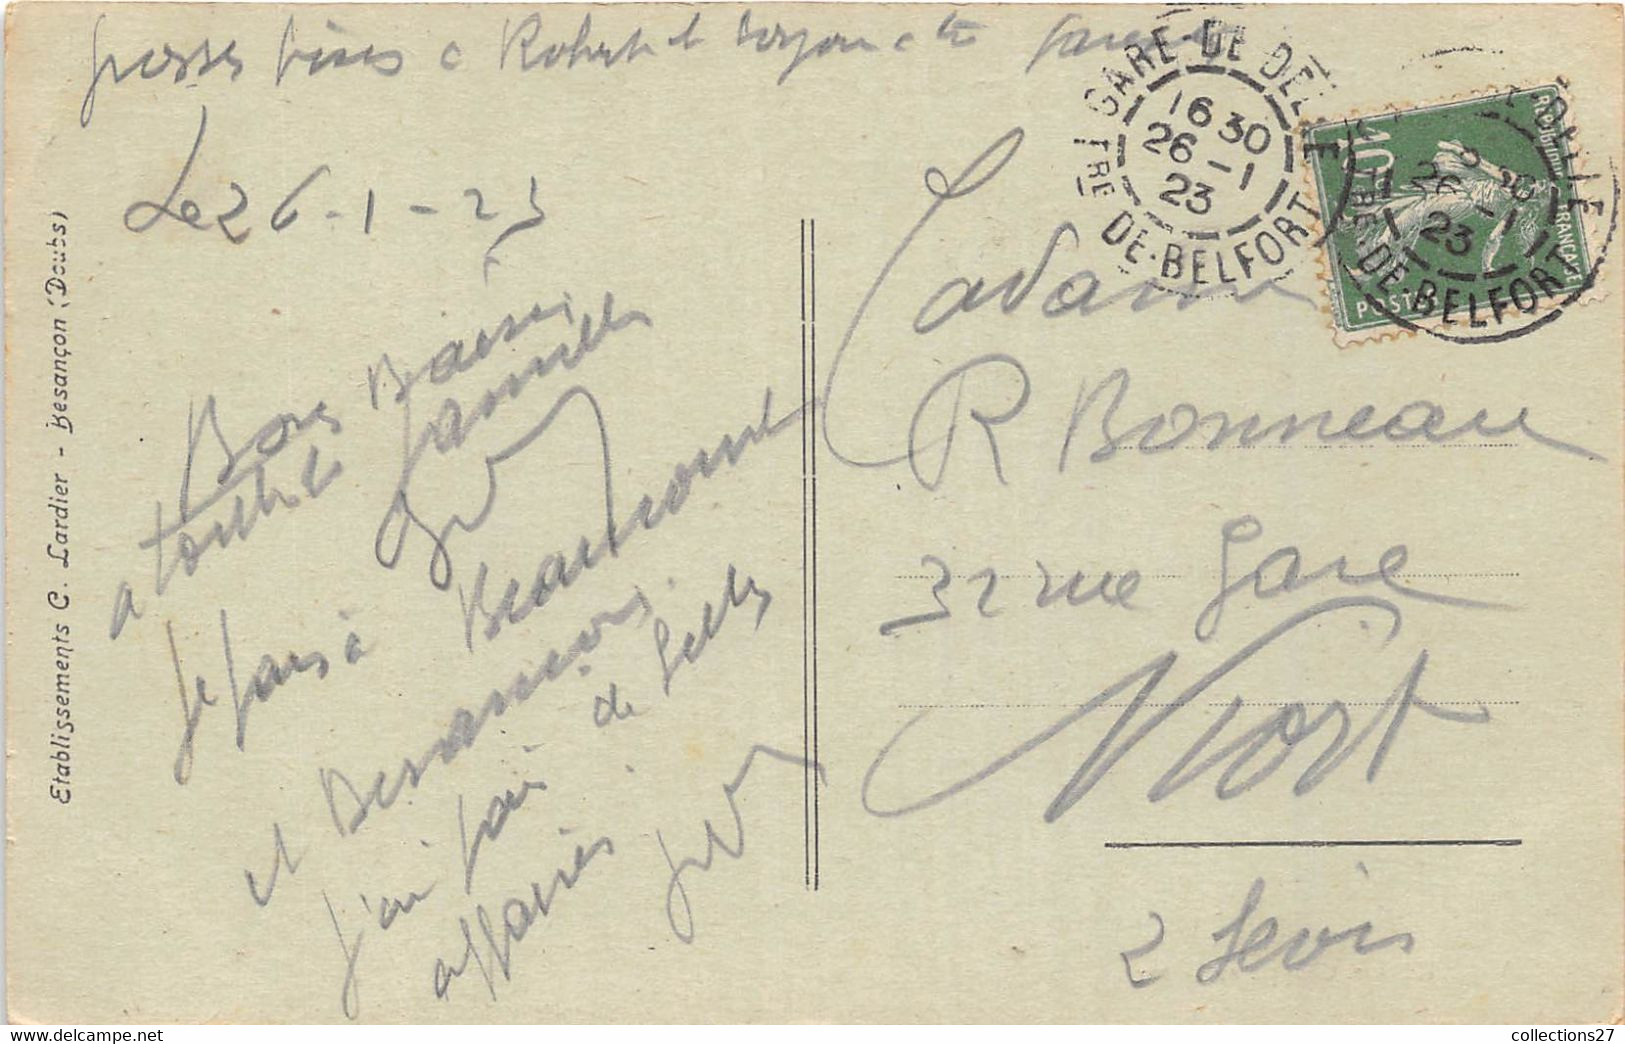 grosses bises a Robert et
Le 26-1-23
Bons Baisers
a toute la famille
Je pars à Beaucourt
et
j'ai fait de belles
affaires
Madame
R Bonneau
32 rue Gare
Niort
2 Sevres
GARE DE DELLE
16 30
26 -1
23
TRE DE BELFORT
GARE DE DELLE
26 -1
23
TRE DE BELFORT
10c
POSTES
République Française
Etablissements C. Lardier - Besançon (Doubs)
collections27